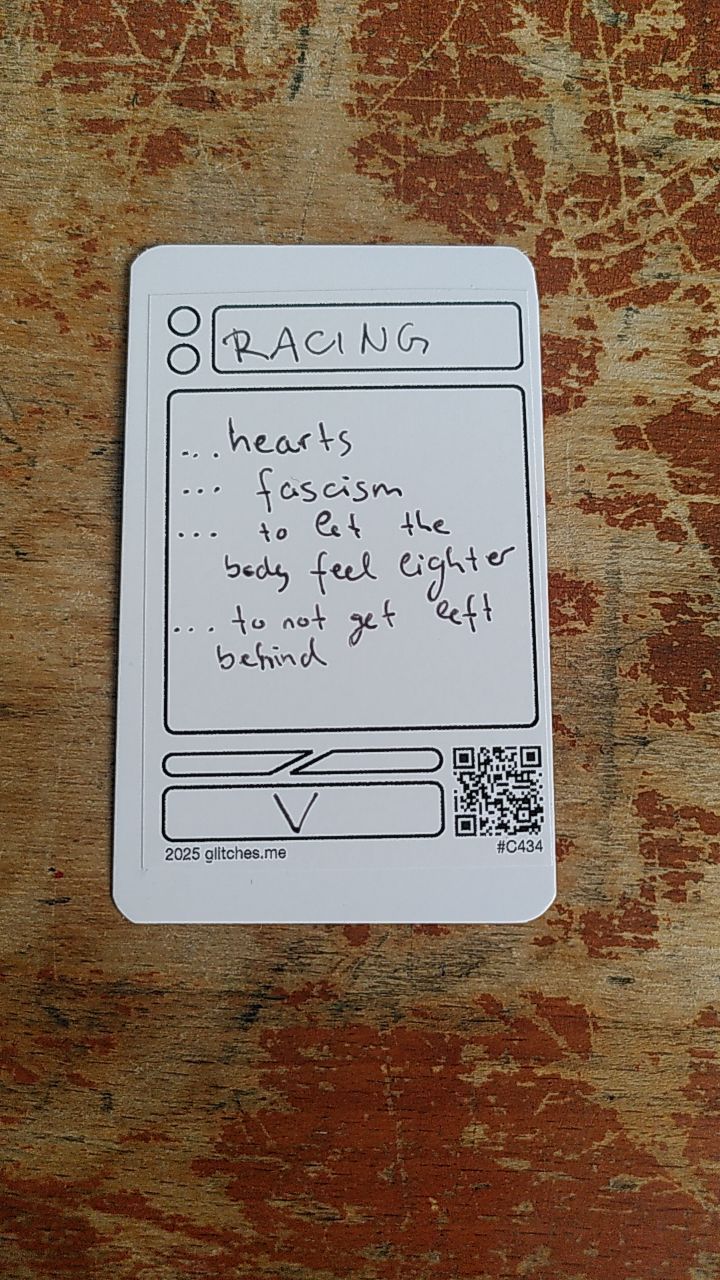 RACING
...hearts
... fascism
... to let the
body feel lighter
... to not get left
behind
V
2025 glitches.me
#C434